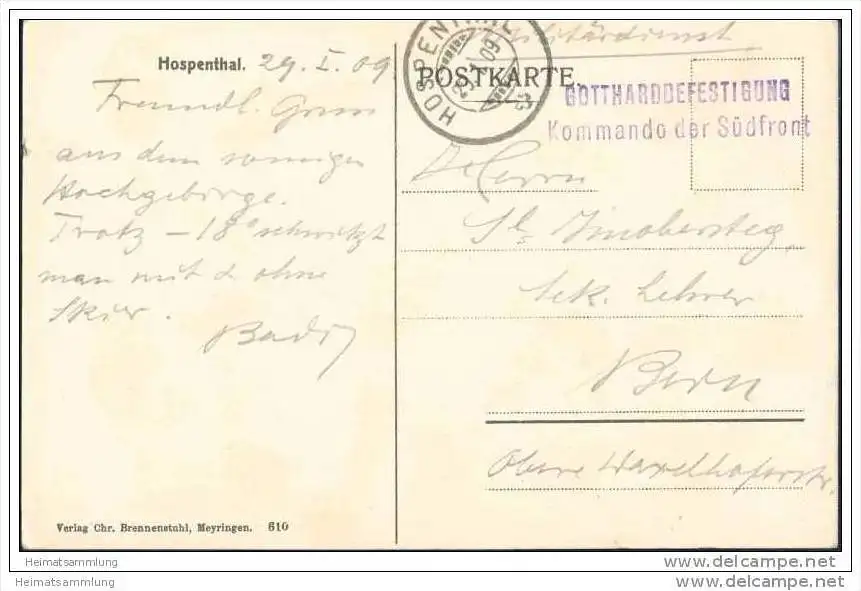 Hospenthal. 29. I. 09
Freundl. Gruss
aus dem sonnigen
Hochgebirge.
Trotz - 18° schwitzt
man mit & ohne
Skier.
Verlag Chr. Brennenstuhl, Meyringen. 610
Militärdienst
HOSPENTHAL
29.I.09
POSTKARTE.
GOTTHARDBEFESTIGUNG
Kommando der Südfront
Herrn
Imobersteg
Sek. Lehrer
Bern
Obere
Heimatsammlung
Heimatsammlung
delcampe.net
delcampe.net